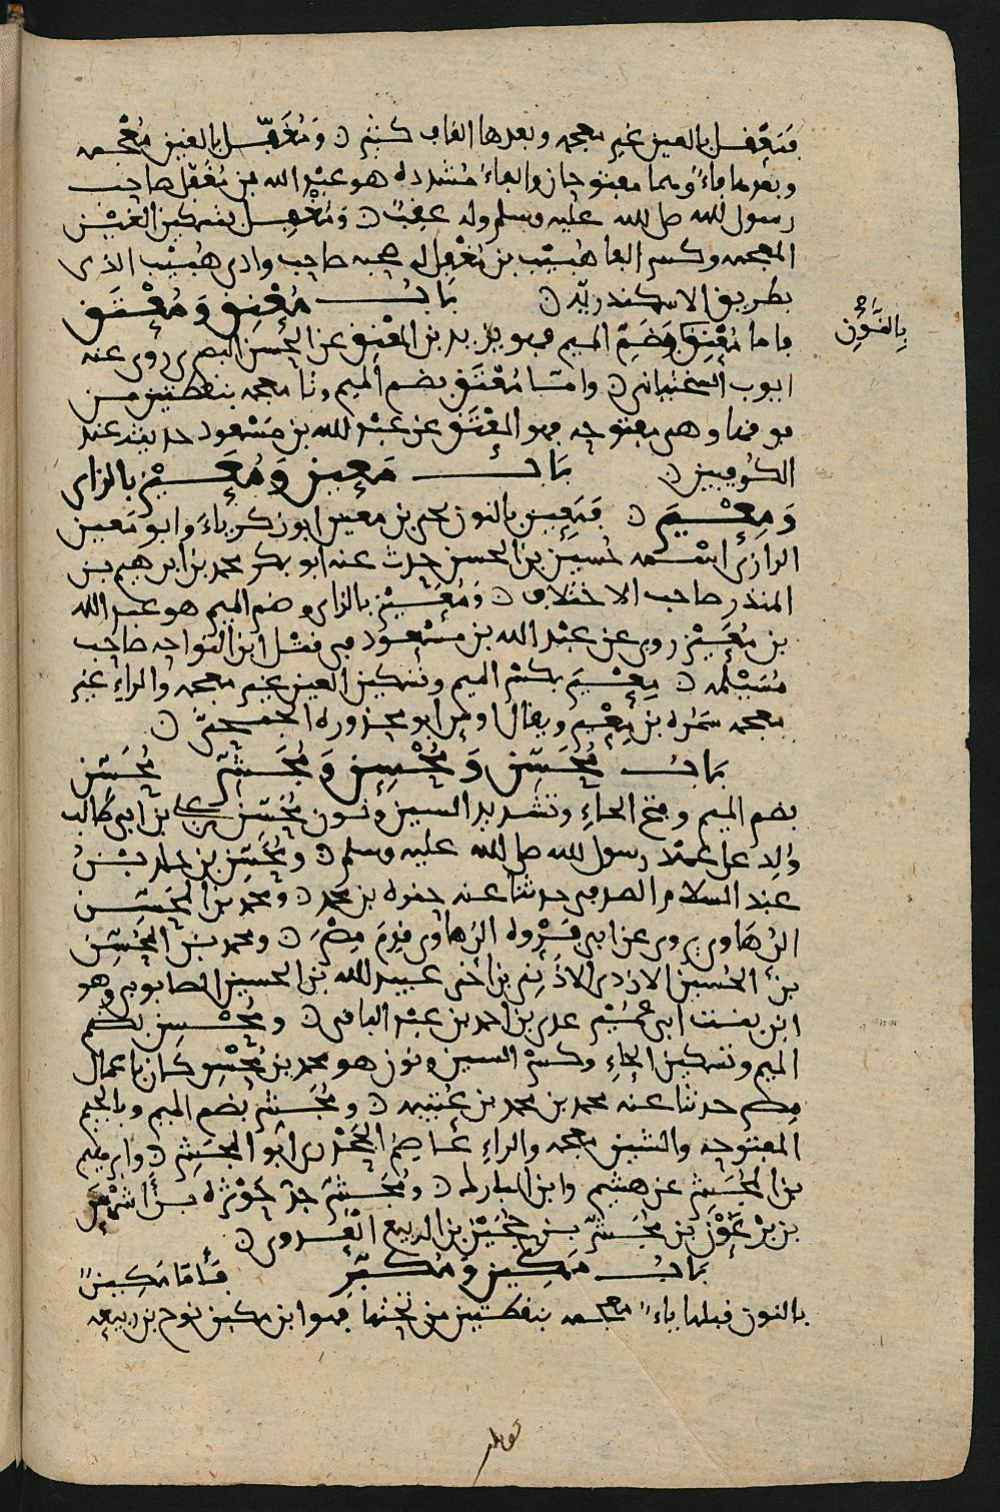 فمعقل بالعين غير معجمه وبعدها القاف كثير ۞ ومغفل بالغين معجمه
وبعدها فاء وهما مفتوحان والفاء مشدده هو عبد الله بن مغفل صاحب
رسول الله صلى الله عليه وسلم وله عقب ۞ ومغفل بتسكين الغين
المعجمه وكسر الفا هبيب بن مغفل له صحبه صاحب وادى هبيب الذى
بطريق الاسكندريه ۞ باب معنق ومعتق
بالنون
فاما معنق فضم الميم فهو يزيد بن المعنق عن الحسن البصرى روى عنه
ايوب السختيانى ۞ وامّا معتق بضم الميم وتا معجمه بنقطتين من
فوقها وهى مفتوحه فهو المعتق عن عبد الله بن مسعود حديثه عند
الكوفيين ۞ باب معين ومعيز بالزاى
ومعير ۞ فمعين بالنون يحيى بن معين ابو زكرياء وابو معين
الرازى اسمه حسين بن الحسن حدث عنه ابو بكر محمد بن ابرهيم بن
المنذر صاحب الاختلاف ۞ ومعيز بالزاى وضم الميم هو عبد الله
بن معيز روى عن عبد الله بن مسعود فى قتل ابن النواحه صاحب
مسيلمه ۞ معير بكسر الميم وتسكين العين غير معجمه والراء غير
معجمه سمره بن معير ويقال اوس ابو محذوره الجمحى ۞
باب محسن ومحسن ومجشر محسن
بضم الميم وفتح الحاء وتشديد السين ونون محسن بن على بن ابى طالب
ولد على عهد رسول الله صلى الله عليه وسلم ۞ ومحسن بن خلد بن
عبد السلام الصدفى حدثنا عنه حمزه بن محمد ۞ ومحمد بن المحسن
الرهاوى يروى عن ابى فروه الرهاوى قدم مصر ۞ ومحمد بن المحسن
بن الحسين الازدى الاذنى بن اخى عبيد الله بن الحسين الصابونى وهو
ابن بنت ابى عمير عدى بن احمد بن عبد الباقى ۞ ومحسن بضم
الميم وتسكين الحاء وكسر السين ونون هو محمد بن محسن كان باعمال
مصر حدثنا عنه محمد بن محمد بن عتيبه ۞ ومجشر بضم الميم وبالجيم
المفتوحه والشين معجمه والراء عاصم الجحدرى ابو المجشر ۞ وابرهيم
بن المجشر عن هشيم وابن المبارك ۞ ومجشر جد حوثره بن اشرس
بن عون بن مجشر بن حجين بن الربيع العدوى ۞
باب مكين ومكبر فأما مكين
بالنون قبلها ياء معجمه بنقطتين من تحتها فهو ابن مكين نوح بن ربيعه